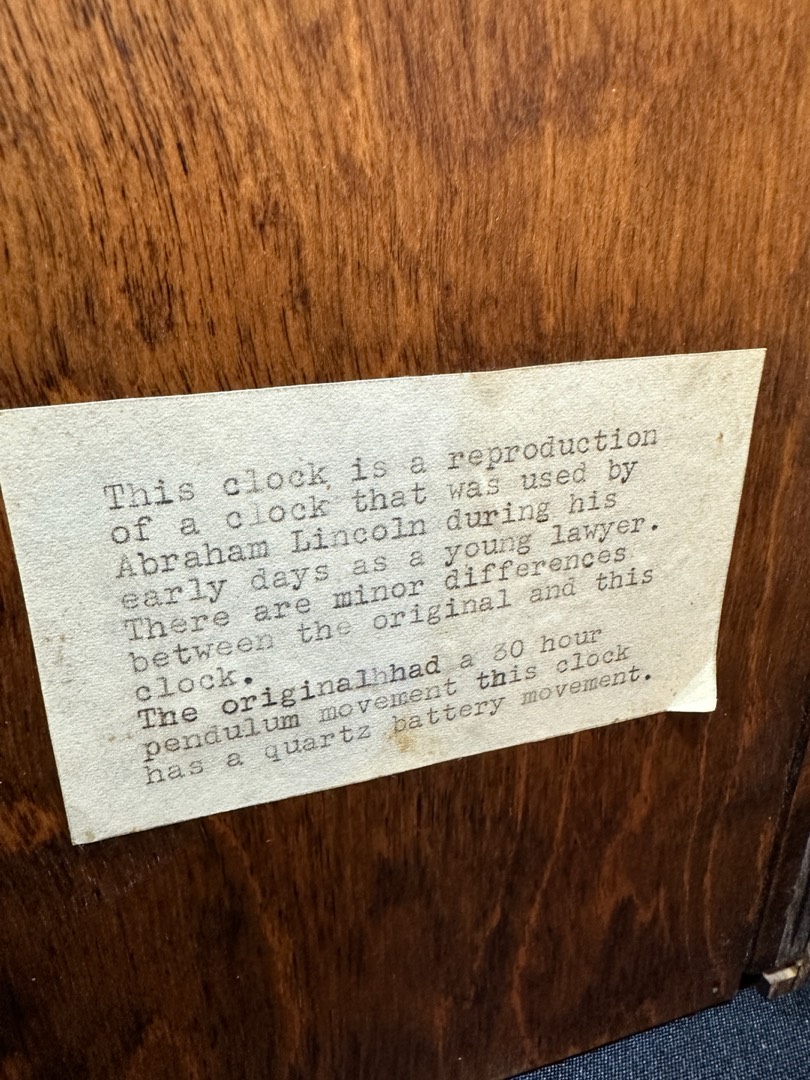 This clock is a reproduction
of a clock that was used by
Abraham Lincoln during his
early days as a young lawyer.
There are minor differences
between the original and this
clock.
The originalhhad a 30 hour
pendulum movement this clock
has a quartz battery movement.